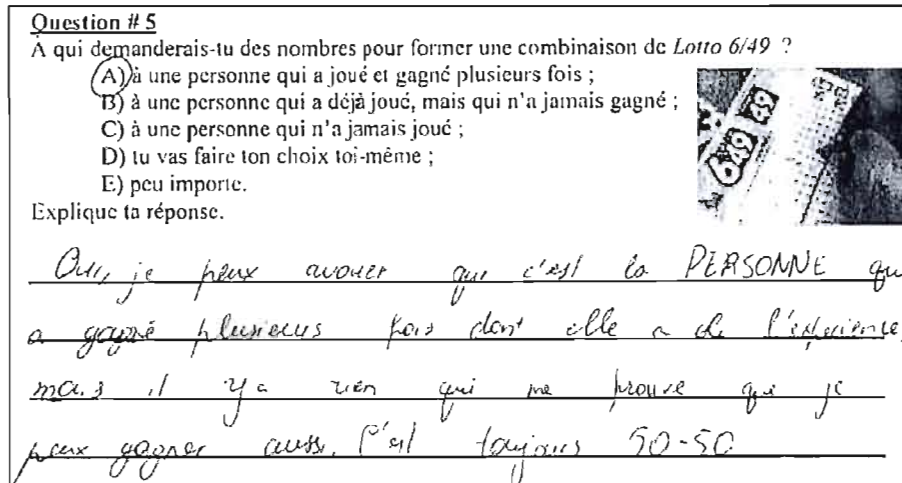 Question # 5
À qui demanderais-tu des nombres pour former une combinaison de Lotto 6/49 ?
A) à une personne qui a joué et gagné plusieurs fois ;
B) à une personne qui a déjà joué, mais qui n'a jamais gagné ;
C) à une personne qui n'a jamais joué ;
D) tu vas faire ton choix toi-même ;
E) peu importe.
Explique ta réponse.
649 49
Oui, je peux avouer que c'est la PERSONNE qu
a gagné plusieurs fois dont elle a de l'expérience,
mais il y a rien qui me prouve que je
peux gagner aussi. C'est toujours 50-50